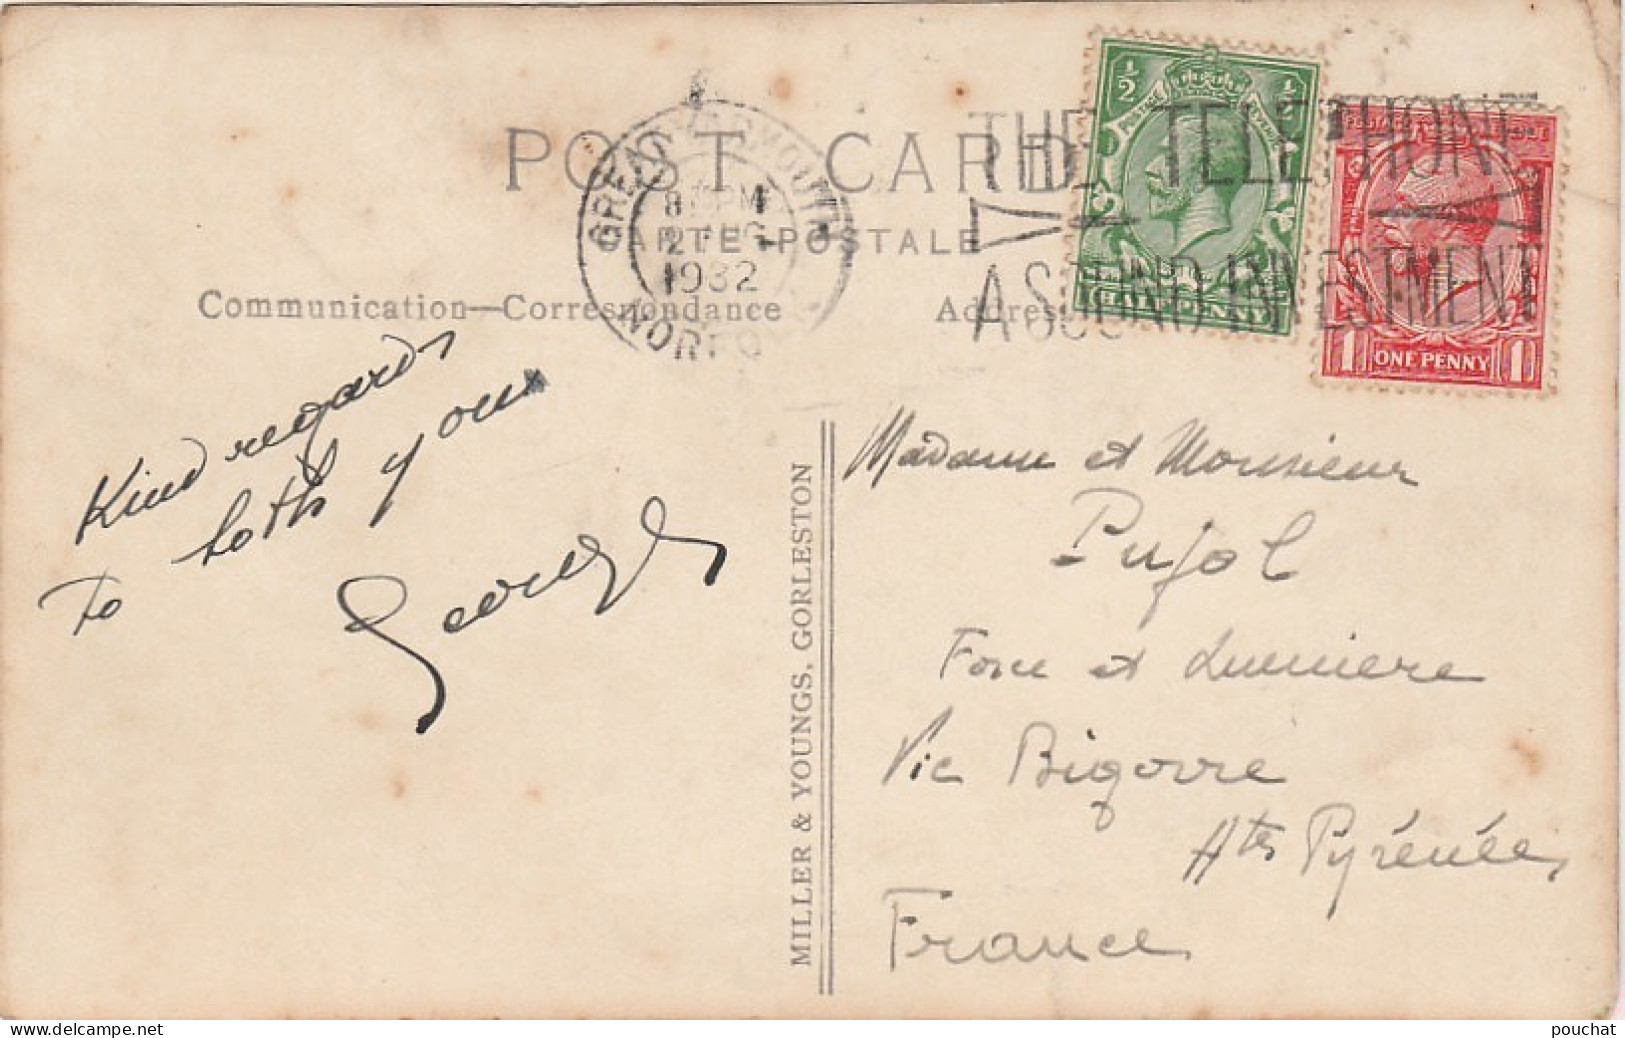 POST CARD
CARTE POSTALE
Communication—Correspondance
Address
GREAT YARMOUTH
8 PM
2 AUG
1932
NORFOLK
THE TELEPHONE
A SOUND INVESTMENT
½ ½
POSTAGE REVENUE
HALFPENNY
POSTAGE REVENUE
1 ONE PENNY 1
Kind regards
to both you
Georges
MILLER & YOUNGS, GORLESTON
Madame et Monsieur
Pujol
Force et Lumiere
Vic Bigorre
Htes Pyrénées
France
pouchat